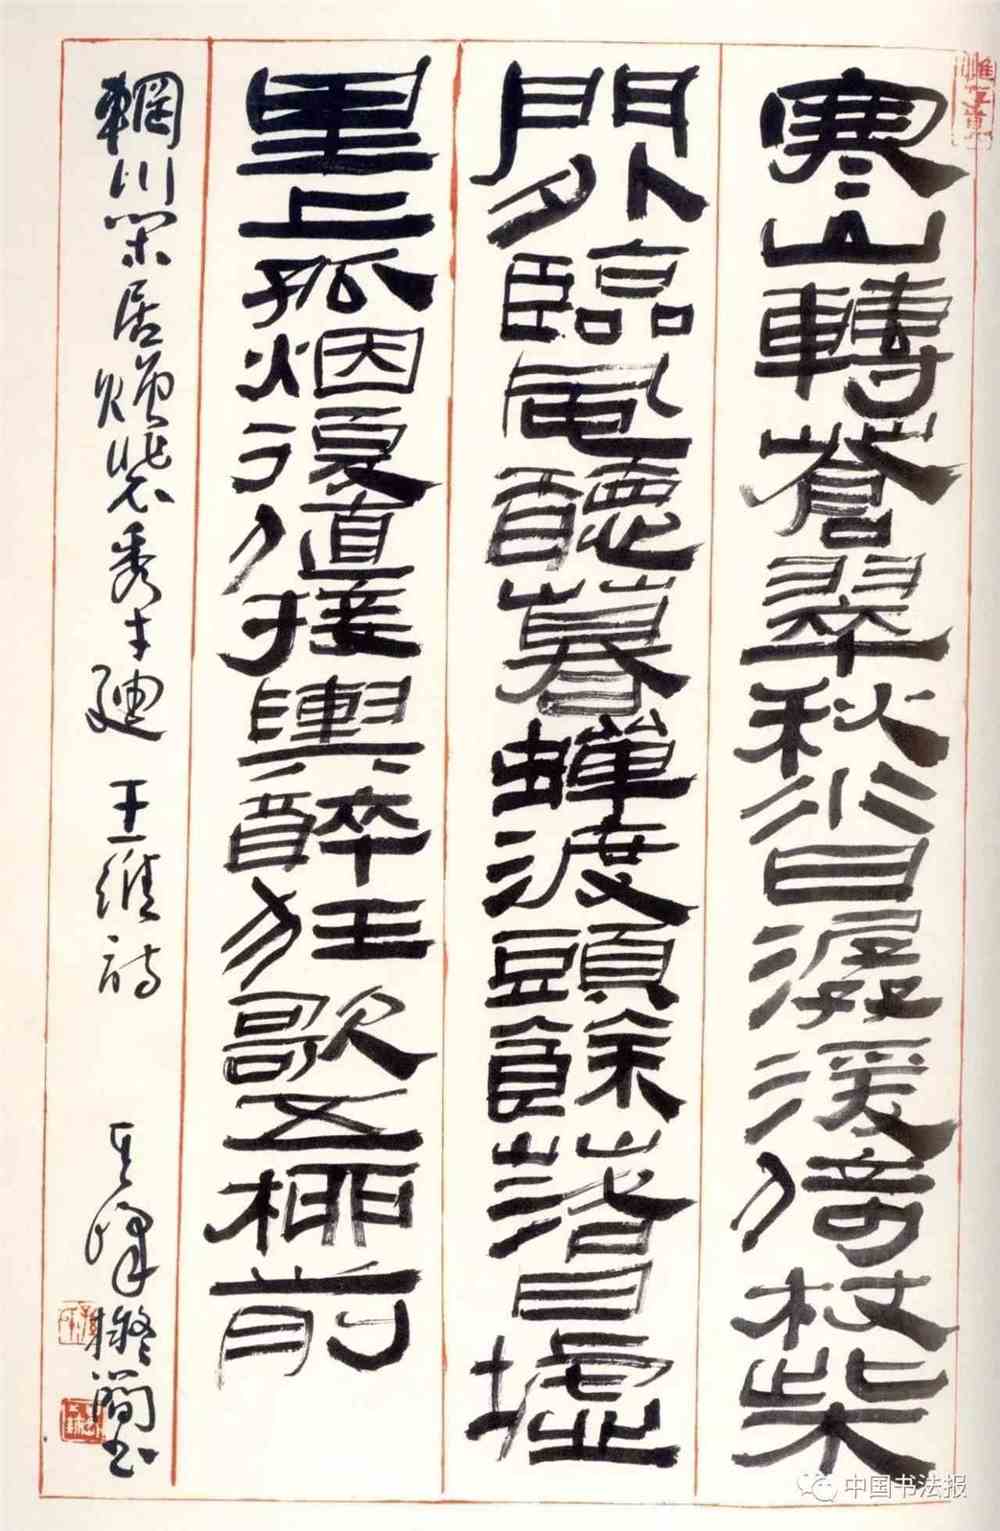 寒山轉蒼翠秋水日潺湲倚杖柴
門外臨風聽暮蟬渡頭餘落日墟
里上孤烟復值接輿醉狂歌五柳前
輞川閑居贈裴秀才迪 王維詩 其峰擬簡書
中国书法报